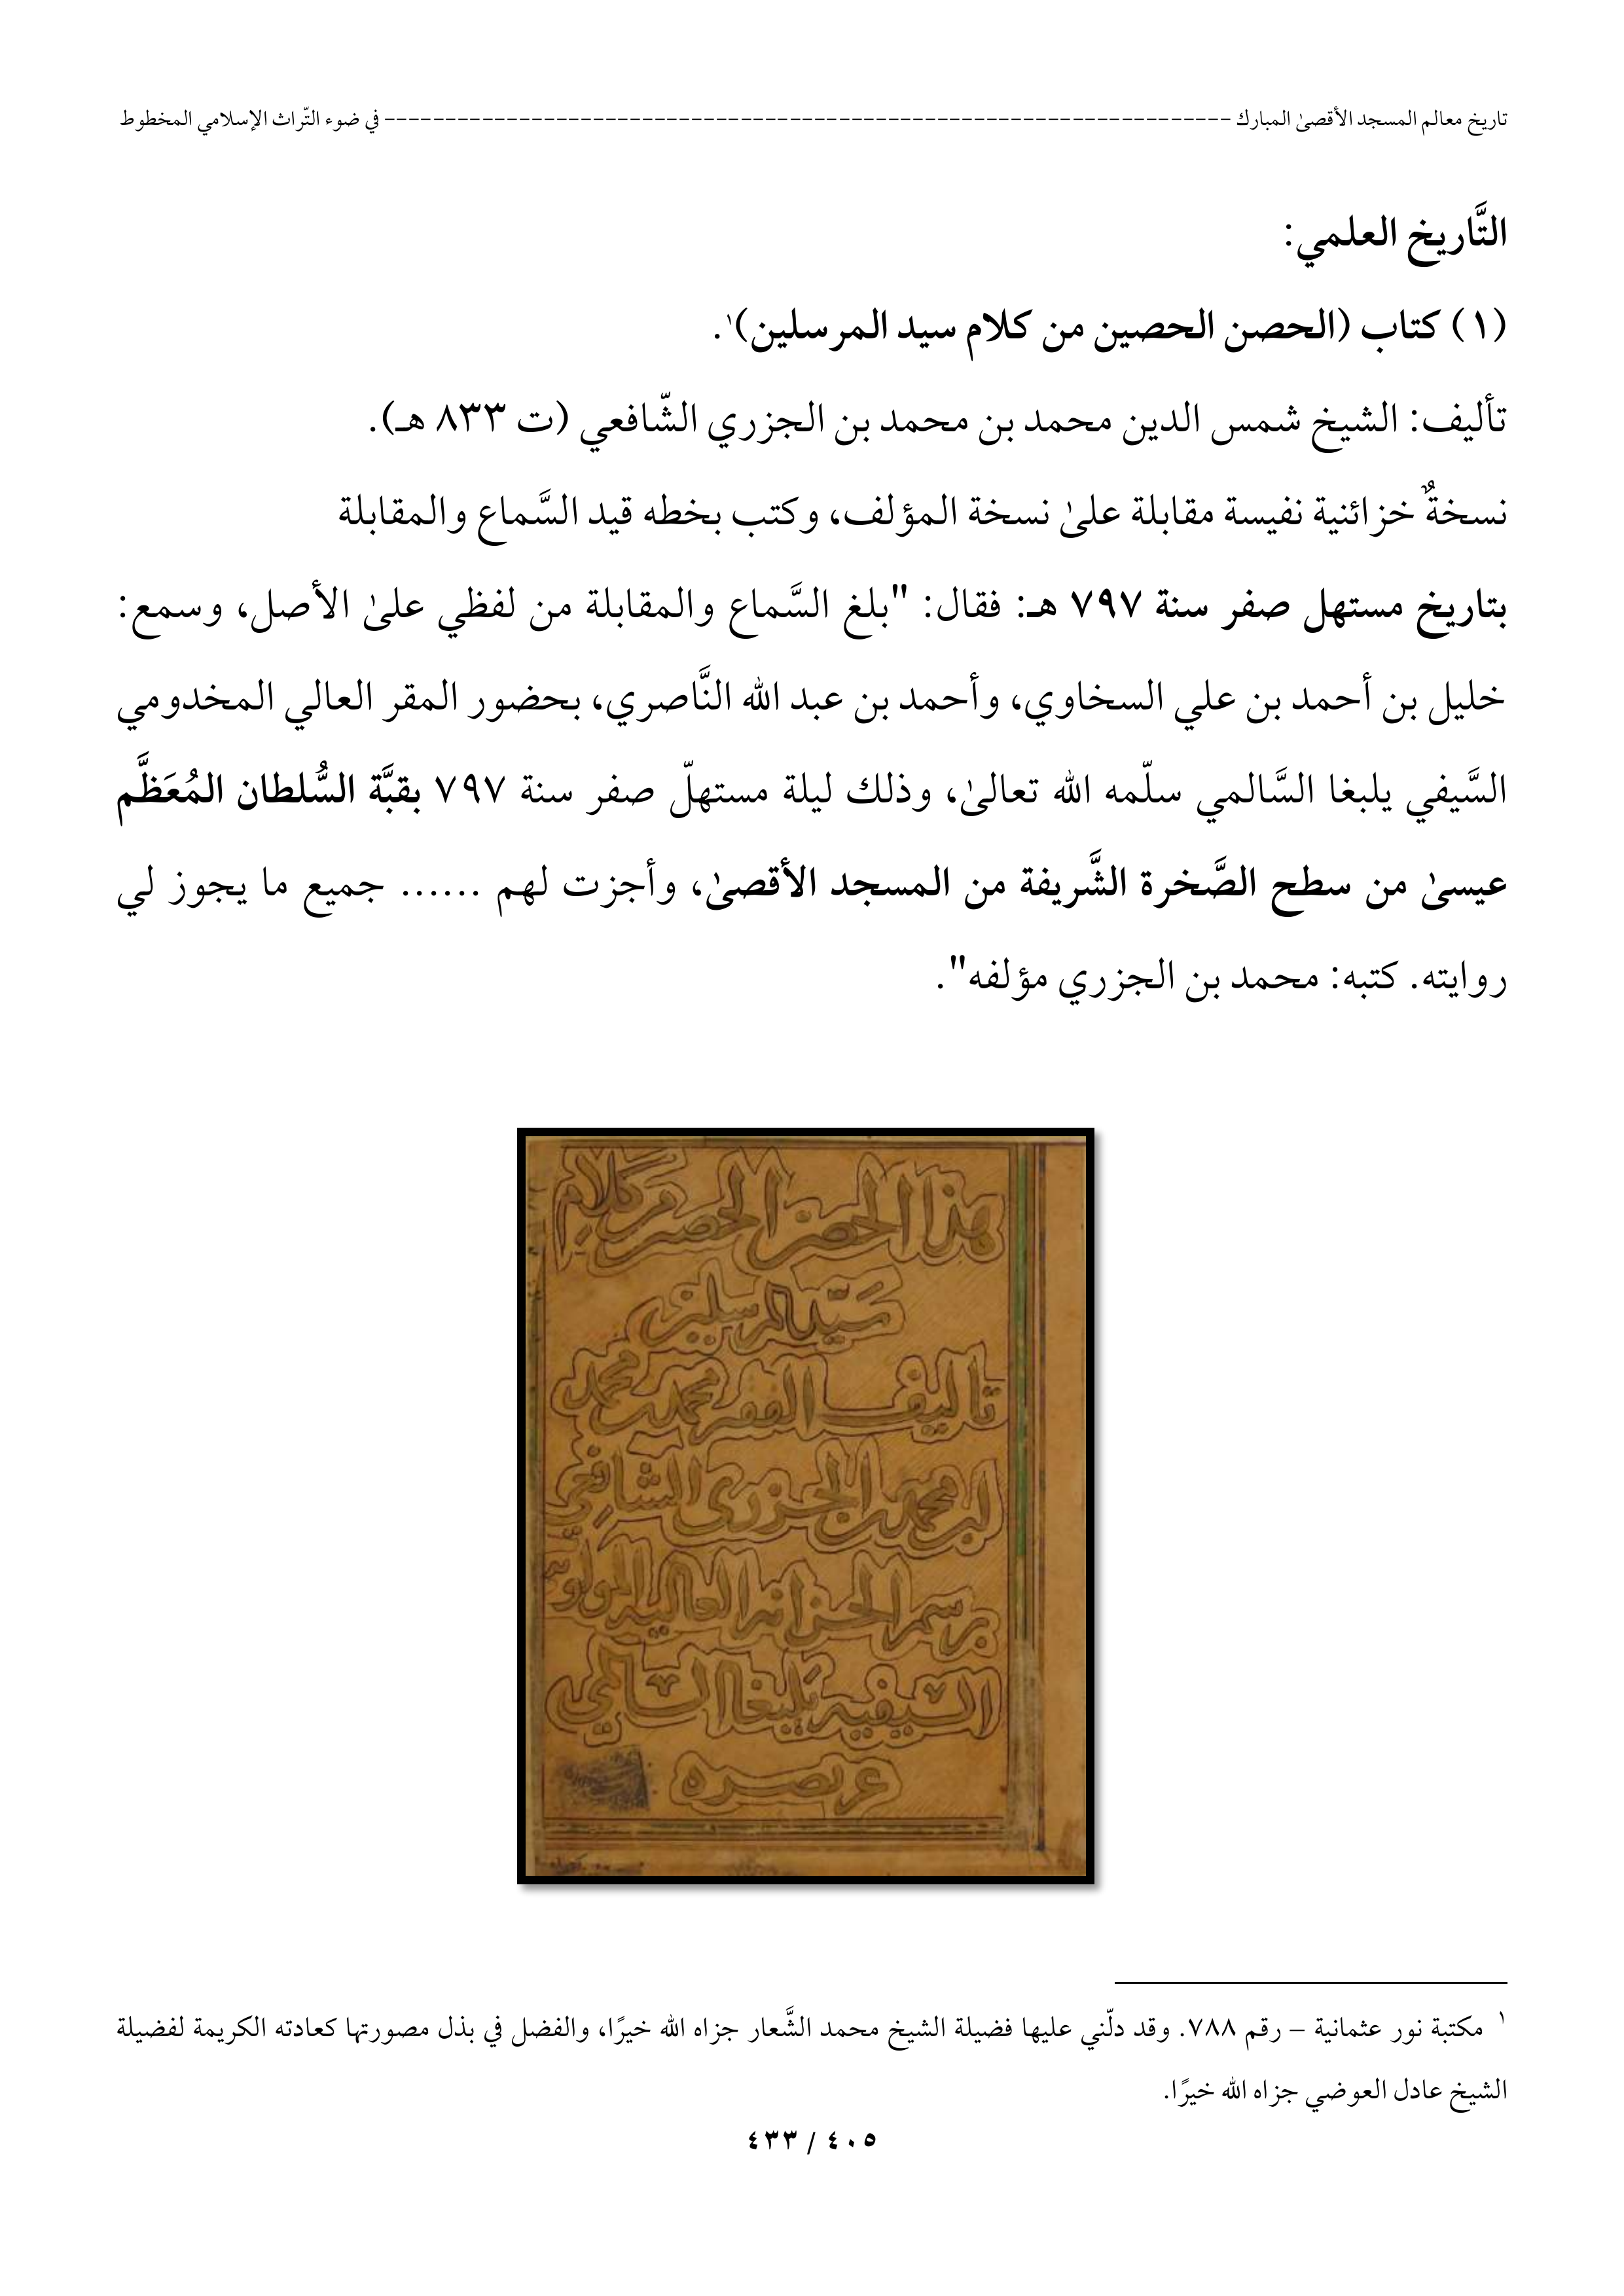 تاريخ معالم المسجد الأقصىٰ المبارك ---------------------------------------------------------------------- في ضوء التّراث الإسلامي المخطوط
التَّاريخ العلمي:
(١) كتاب (الحصن الحصين من كلام سيد المرسلين)١.
تأليف: الشيخ شمس الدين محمد بن محمد بن الجزري الشّافعي (ت ٨٣٣ هـ).
نسخةٌ خزائنية نفيسة مقابلة علىٰ نسخة المؤلف، وكتب بخطه قيد السَّماع والمقابلة
بتاريخ مستهل صفر سنة ٧٩٧ هـ: فقال: "بلغ السَّماع والمقابلة من لفظي علىٰ الأصل، وسمع:
خليل بن أحمد بن علي السخاوي، وأحمد بن عبد الله النَّاصري، بحضور المقر العالي المخدومي
السَّيفي يلبغا السَّالمي سلّمه الله تعالىٰ، وذلك ليلة مستهلّ صفر سنة ٧٩٧ بقبَّة السُّلطان المُعَظَّم
عيسىٰ من سطح الصَّخرة الشَّريفة من المسجد الأقصىٰ، وأجزت لهم ...... جميع ما يجوز لي
روايته. كتبه: محمد بن الجزري مؤلفه".
هذا الحصن الحصين من كلام
سيّد المرسلين
تأليف الفقير محمد بن محمد
ابن محمد بن الجزرى الشافعي
برسم الخزانه العاليه المولوية
السيفيه يلبغا السالمي
عز نصره
١ مكتبة نور عثمانية – رقم ٧٨٨. وقد دلّني عليها فضيلة الشيخ محمد الشَّعار جزاه الله خيرًا، والفضل في بذل مصورتها كعادته الكريمة لفضيلة
الشيخ عادل العوضي جزاه الله خيرًا.
٤٠٥ / ٤٣٣